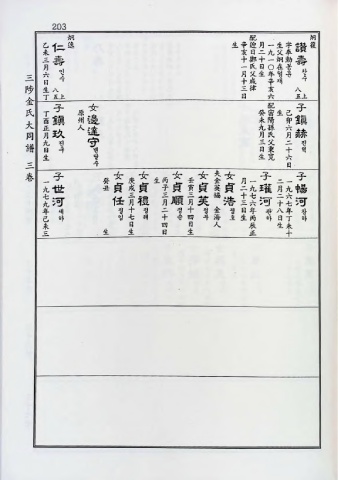 203
三陟金氏大同譜 三卷
炳龍
讚壽 찬수
八五上
字奉勳
生父炳在
一九一〇年辛亥六
月二十日生
配迎日鄭氏父成律
辛亥十一月十三日
生
炳逸
仁壽 인수
八五上
乙未三月六日生丁
子鎭赫 진혁
己卯六月二十六日
生
配密陽孫氏父東寬
癸未九月三日生
女邊達守 변달수
原州人
子鎭玖 진구
丁酉正月九日生
子暢河 창하
一九六七年丁未十
二月二十八日生
子瓘河 관하
一九七六年丙辰正
月二十三日生
女貞浩 정호
夫金英福 金海人
女貞英 정영
壬寅三月十四日生
女貞順 정순
丙子三月二十四日
生
女貞禮 정례
庚戌三月十七日生
女貞任 정임
癸丑 生
子世河 세하
一九七九年己未三